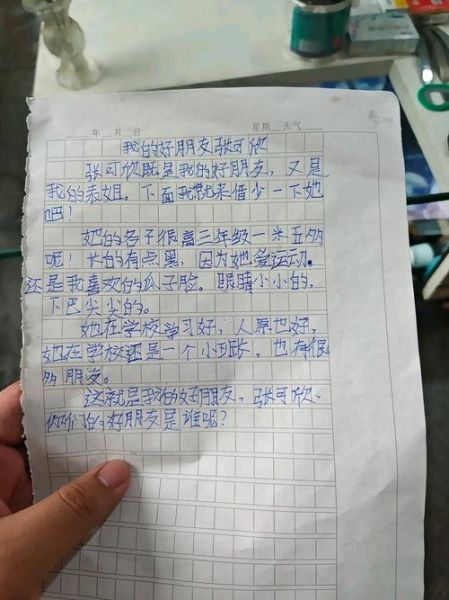 年 月 日 星期 天气
我的好朋友张可欣
张可欣既是我的好朋友，又是
我的表姐。下面我就来借少一下她
吧！
她的各子很高三年级一米五多
呢！长的有点黑，因为她爱运动。
还是我喜欢的瓜子脸。眼睛小小的，
下巴尖尖的。
她在学校学习好，人原也好，
她在学校还是一个小班长，也有很
多朋友。
这就是我的好朋友，张可欣、
你们的好朋友是谁呢？